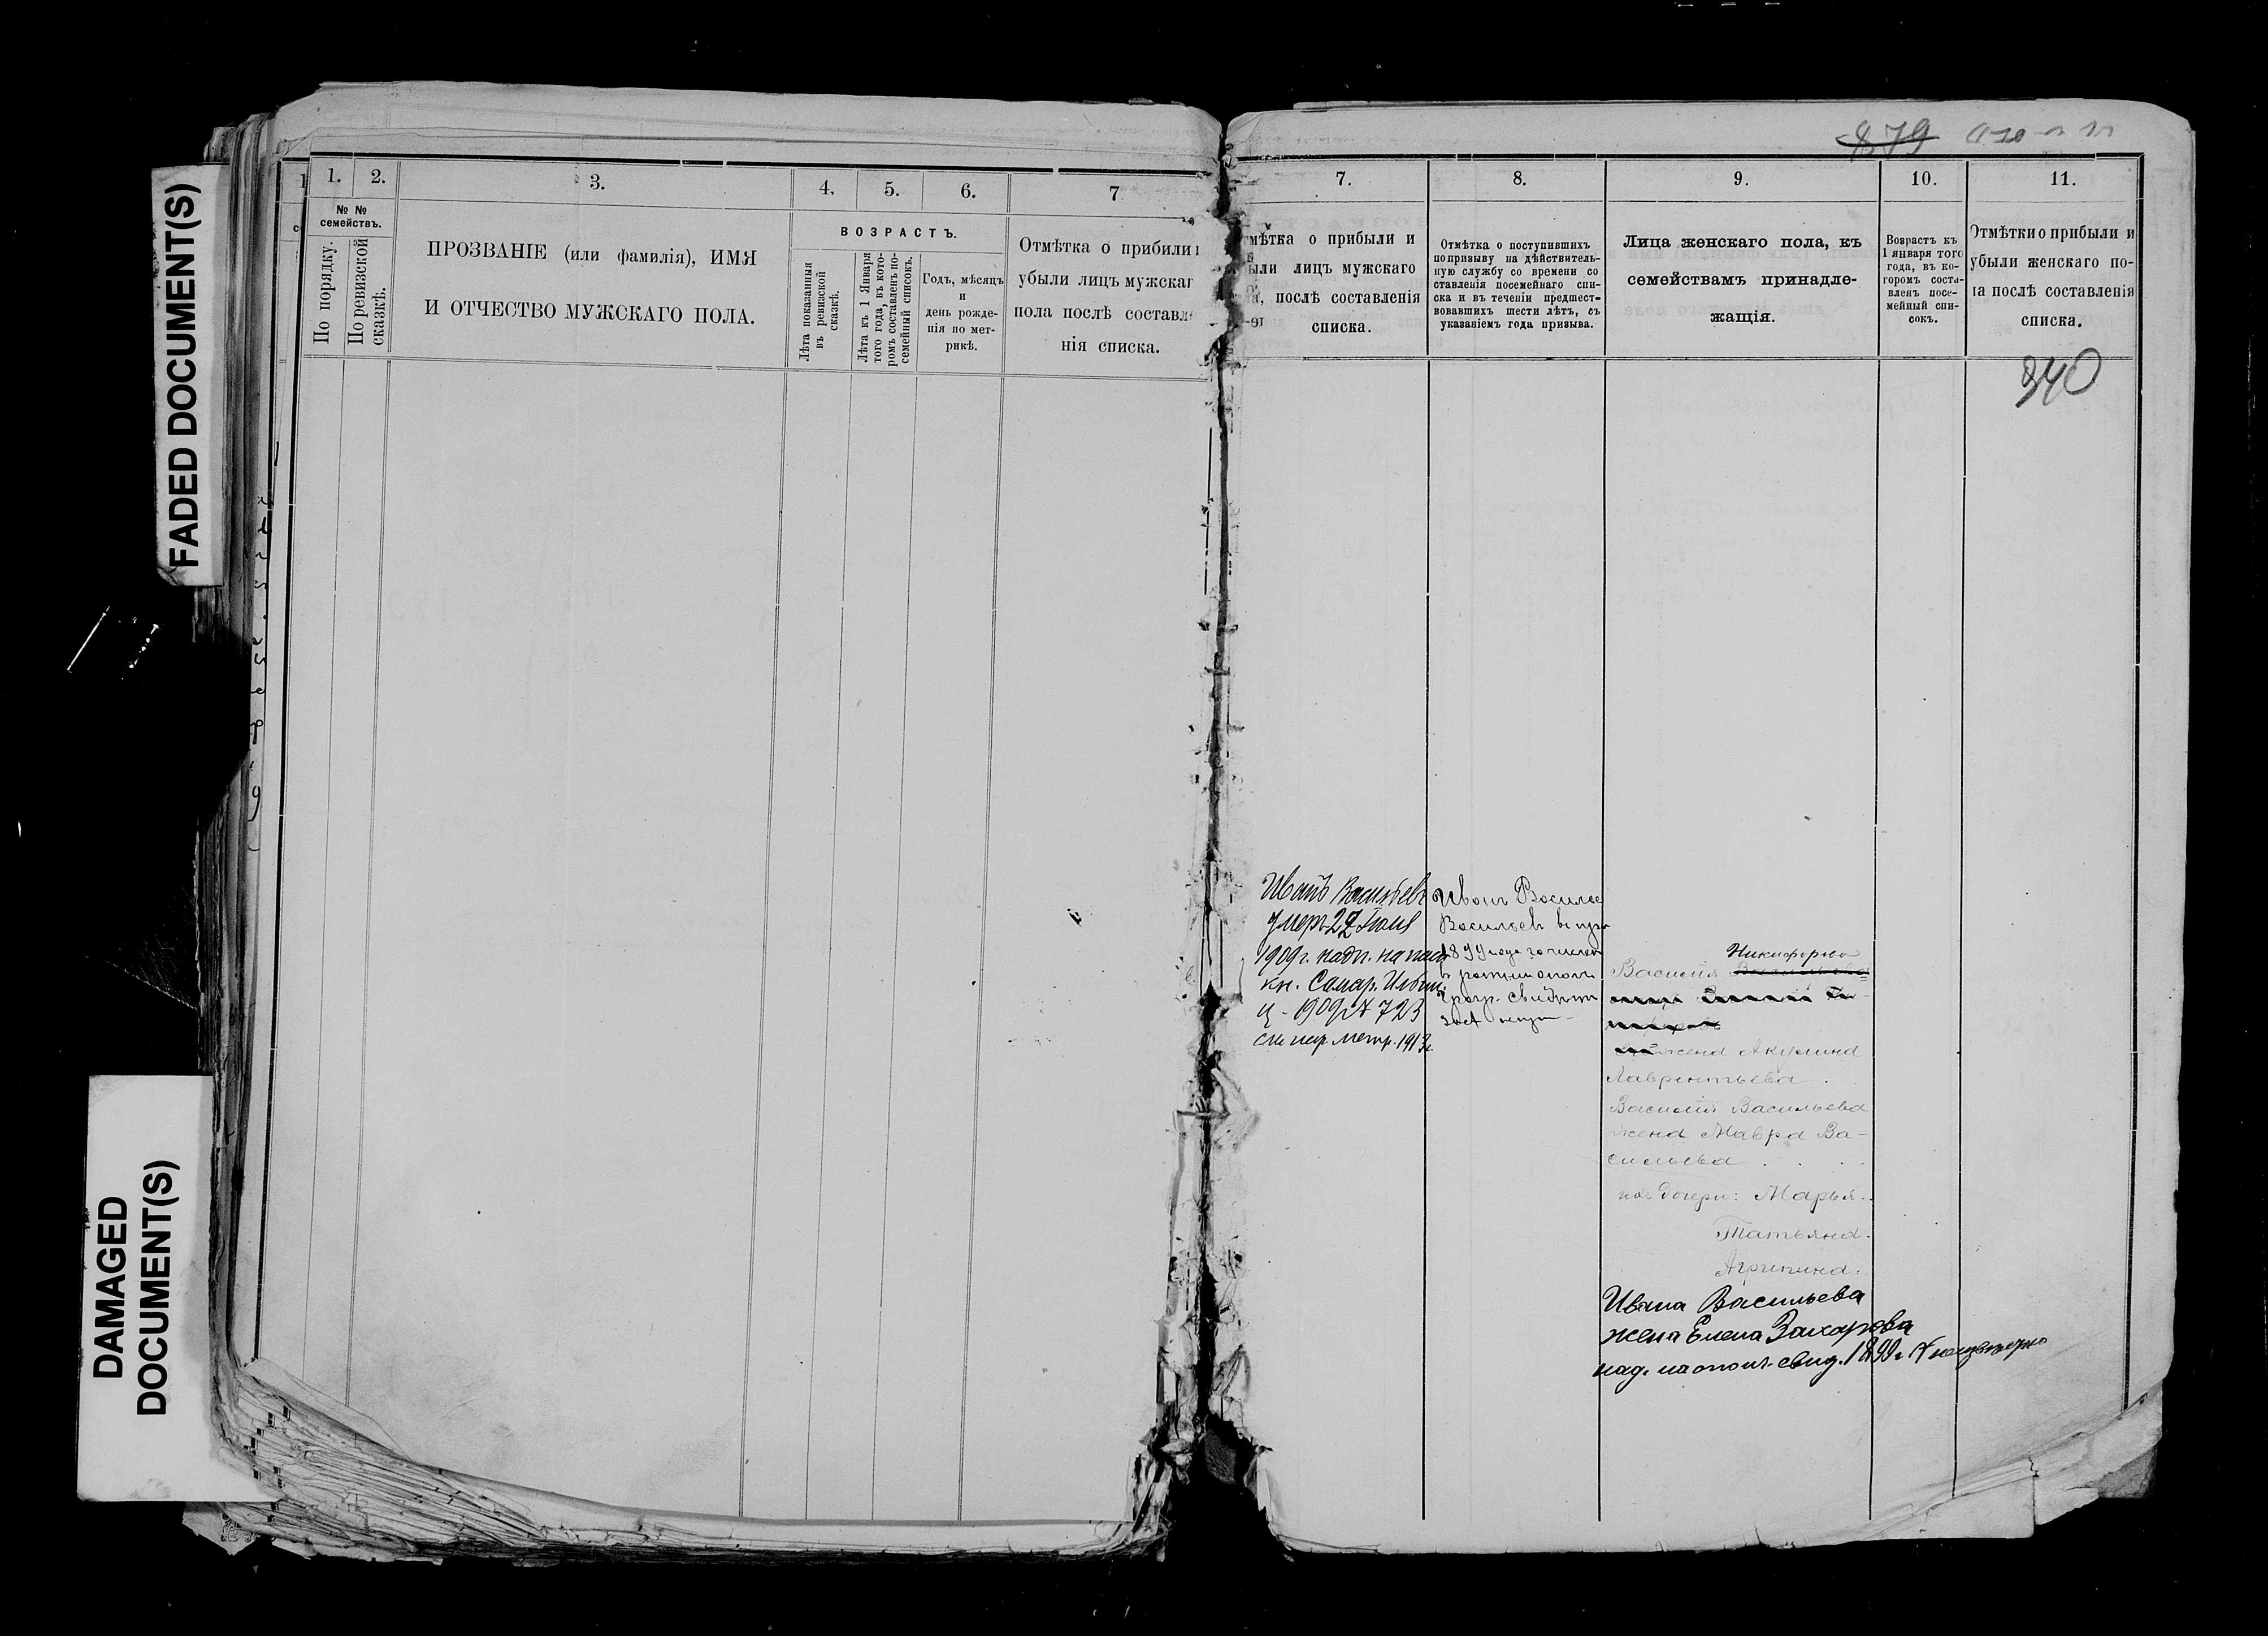 FADED DOCUMENT(S)
DAMAGED
DOCUMENT(S)
1. 2. 3. 4. 5. 6. 7
№ №
семействъ.
По порядку.
По ревизской
сказкѣ.
ПРОЗВАНІЕ (или фамилія), ИМЯ
И ОТЧЕСТВО МУЖСКАГО ПОЛА.
ВОЗРАСТЪ.
Лѣта показанныя
въ ревизской
сказкѣ.
Лѣта къ 1 Января
того года, въ кото-
ромъ составленъ по-
семейный списокъ.
Годъ, мѣсяцъ
и
день рожде-
нія по мет-
рикѣ.
Отмѣтка о прибили и
убыли лицъ мужскаг
пола послѣ составле
нія списка.
879
7. 8. 9. 10. 11.
мѣтка о прибыли и
ыли лицъ мужскаго
а, послѣ составленія
списка.
Отмѣтка о поступившихъ
по призыву на дѣйствитель-
ную службу со времени со
ставленія посемейнаго спи-
ска и въ теченіи предшест-
вовавшихъ шести лѣтъ, съ
указаніемъ года призыва.
Лица женскаго пола, къ
семействамъ принадле-
жащія.
Возрастъ къ
1 января того
года, въ ко-
торомъ соста-
вленъ посе-
мейный спи-
сокъ.
Отмѣтки о прибыли и
убыли женскаго по-
ла послѣ составленія
списка.
340
Иванъ Васильевъ
умеръ 22 Іюня
1909г. надп. на пасп
кн. Самар.
ц - 1909 № 723
метр. 1913г.
Иванъ Василье
Васильевъ
1899 года
Никифорова
Василія
жена Акулина
Лаврентьева.
Василія Васильева
жена Мавра Ва-
сильева . . .
ихъ дочери: Марья.
Татьяна.
Агрипина.
Ивана Васильева
жена Елена Захарова
над. на опол. свид. 1899г.